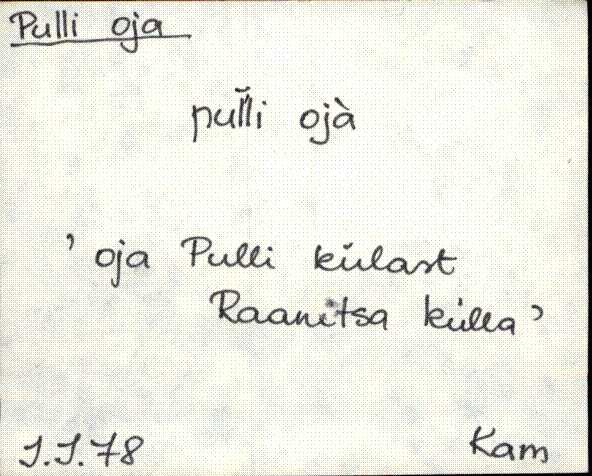 Pulli oja
pul̆li ojà
' oja Pulli külast
Raanitsa külla '
J.J.78
Kam